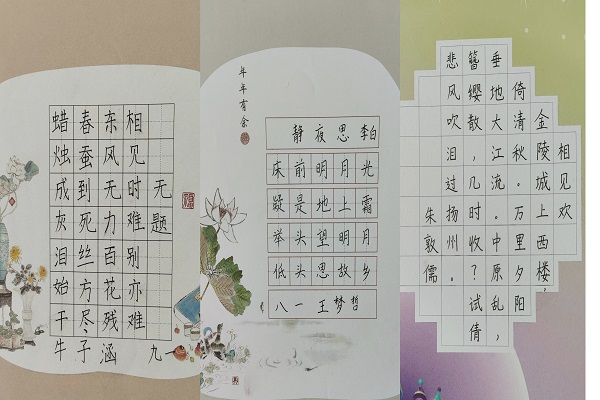 无题
相见时难别亦难
东风无力百花残
春蚕到死丝方尽
蜡烛成灰泪始干
牛子涵 九一
年年有余
静夜思 李白
床前明月光
疑是地上霜
举头望明月
低头思故乡
八一 王梦哲
相见欢
金陵城上西楼,
倚清秋。万里夕阳
垂地大江流。中原乱,
簪缨散,几时收?试倩
悲风吹泪过扬州。
朱敦儒